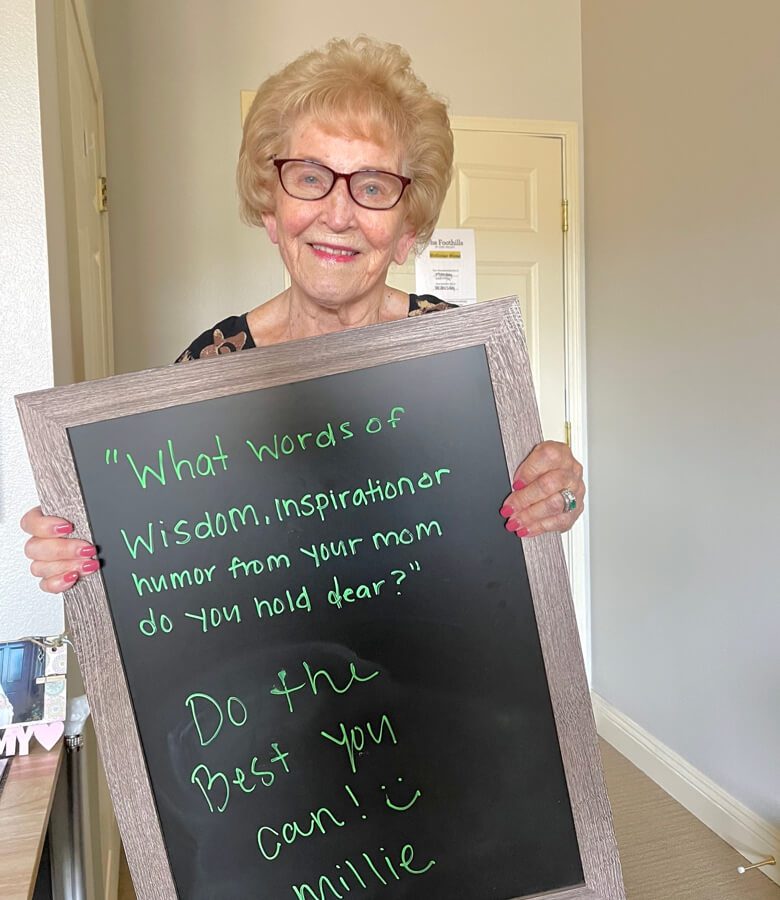 The Foothills
"What words of
Wisdom, inspiration or
humor from your mom
do you hold dear?"
Do the
Best you
can! :)
millie
MY